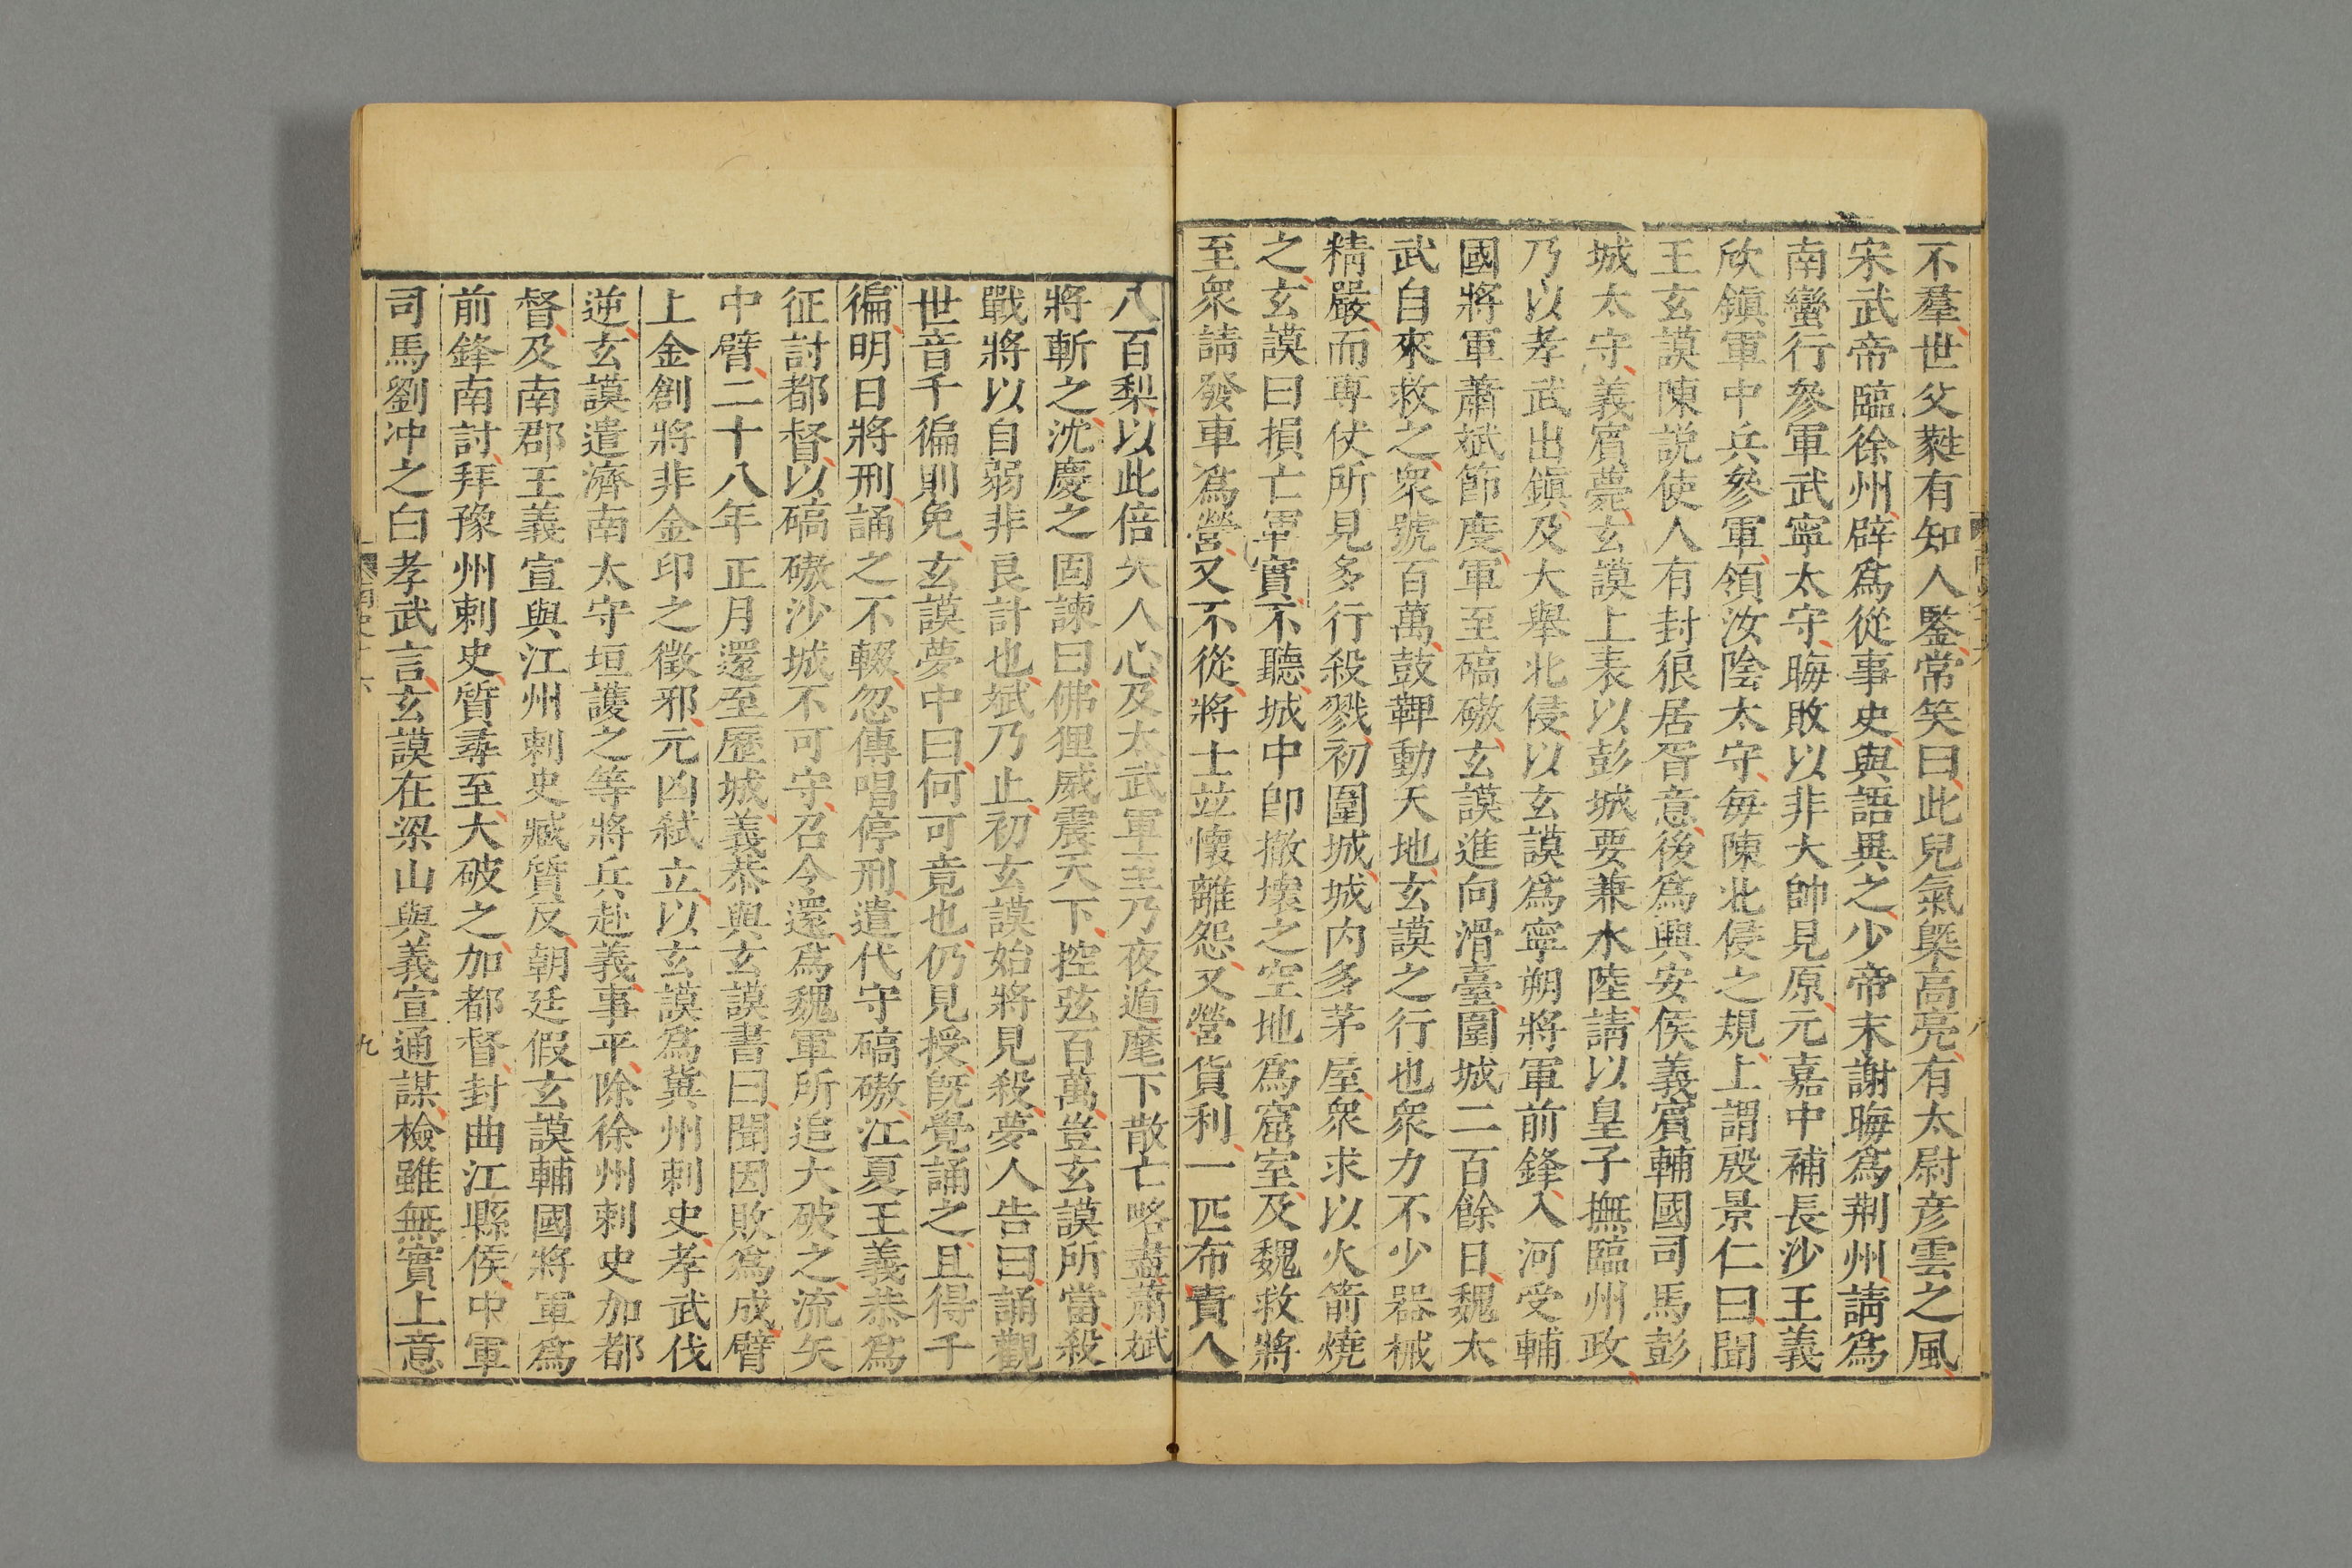 不羣世父蕤有知人鑒常笑曰此兒氣槩高亮有太尉彦雲之風
宋武帝臨徐州辟爲從事史與語異之少帝末謝晦爲荆州請爲
南蠻行參軍武寧太守晦敗以非大帥見原元嘉中補長沙王義
欣鎮軍中兵參軍領汝陰太守每陳北侵之規上謂殷景仁曰聞
王玄謨陳説使人有封狼居胥意後爲興安侯義賓輔國司馬彭
城太守義賓薨玄謨上表以彭城要兼水陸請以皇子撫臨州政
乃以孝武出鎮及大舉北侵以玄謨爲寧朔將軍前鋒入河受輔
國將軍蕭斌節度軍至碻磝玄謨進向滑臺圍城二百餘日魏太
武自來救之衆號百萬鼓鞞動天地玄謨之行也衆力不少器械
精嚴而專仗所見多行殺戮初圍城城内多茅屋衆求以火箭燒
之玄謨曰損亡軍實不聽城中卽撤壞之空地爲窟室及魏救將
至衆請發車爲營又不從將士並懷離怨又營貨利一匹布責人
八百梨以此倍失人心及太武軍至乃夜遁麾下散亡略盡蕭斌
將斬之沈慶之固諫曰佛狸威震天下控弦百萬豈玄謨所當殺
戰將以自弱非良計也斌乃止初玄謨始將見殺夢人告曰誦觀
世音千徧則免玄謨夢中曰何可竟也仍見授旣覺誦之且得千
徧明日將刑誦之不輟忽傳唱停刑遣代守碻磝江夏王義恭爲
征討都督以碻磝沙城不可守召令還爲魏軍所追大破之流矢
中臂二十八年正月還至歷城義恭與玄謨書曰聞因敗爲成臂
上金創將非金印之徵邪元凶弑立以玄謨爲冀州刺史孝武伐
逆玄謨遣濟南太守垣護之等將兵赴義事平除徐州刺史加都
督及南郡王義宣與江州刺史臧質反朝廷假玄謨輔國將軍爲
前鋒南討拜豫州刺史質尋至大破之加都督封曲江縣侯中軍
司馬劉冲之白孝武言玄謨在梁山與義宣通謀檢雖無實上意
九